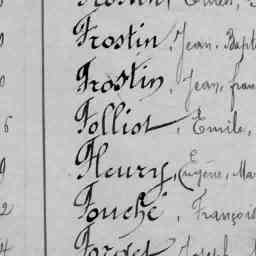 Frostin, Jean-Bapt
Frostin, Jean, fran
6 Folliot, Emile,
9 Fleury, (Eugène, Ma
2 Fouché, François
4 Joseph